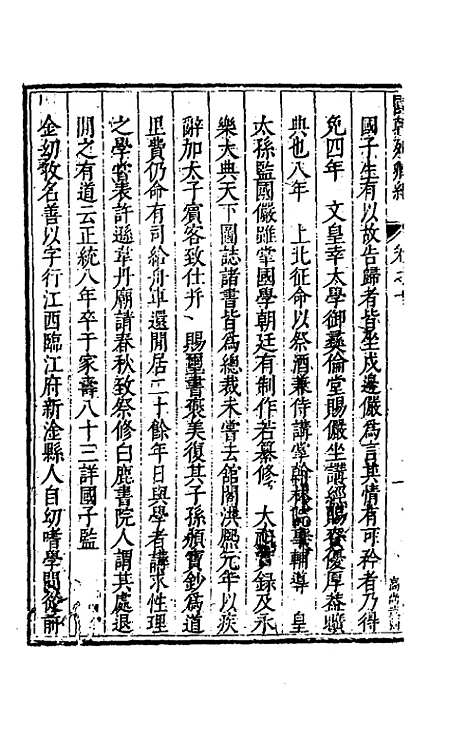 國子生有以故告歸者皆坐戍邊儼爲言其情有可矜者乃得
免四年　文皇幸太學御彝倫堂賜儼坐講經賜賚優厚蓋曠
典也八年　上北征命以祭酒兼侍講掌翰林院事輔導　皇
太孫監國儼雖掌國學朝廷有制作若纂修　太祖實錄及永
樂大典天下圖誌諸書皆爲總裁未嘗去館閣洪熙元年以疾
辭加太子賓客致仕幷　賜璽書褒美復其子孫頒寶鈔爲道
里費仍命有司給舟車還閒居二十餘年日與學者講求性理
之學嘗表許遜韋丹廟請春秋致祭修白鹿書院人謂其處退
閒之有道云正統八年卒于家壽八十三詳國子監
金幼孜名善以字行江西臨江府新淦縣人自幼嗜學問從前